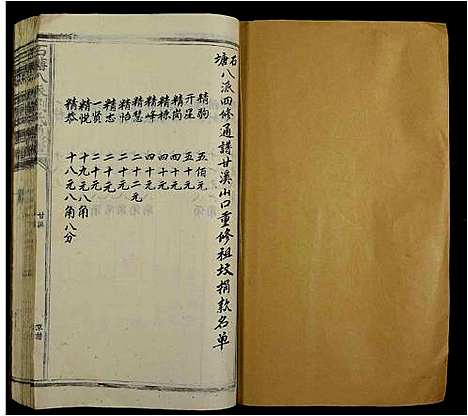 石塘八派四修通譜甘溪山口重修祖坟捐款名单
精驹 五佰元
开星 五十元
精岗 四十元
精棟 四十元
精峰 四十元
精慧 二十二元
精怡 二十元
精志 二十元
一贤 二十元
精悦 十九元八角
精恭 十八元八角八分